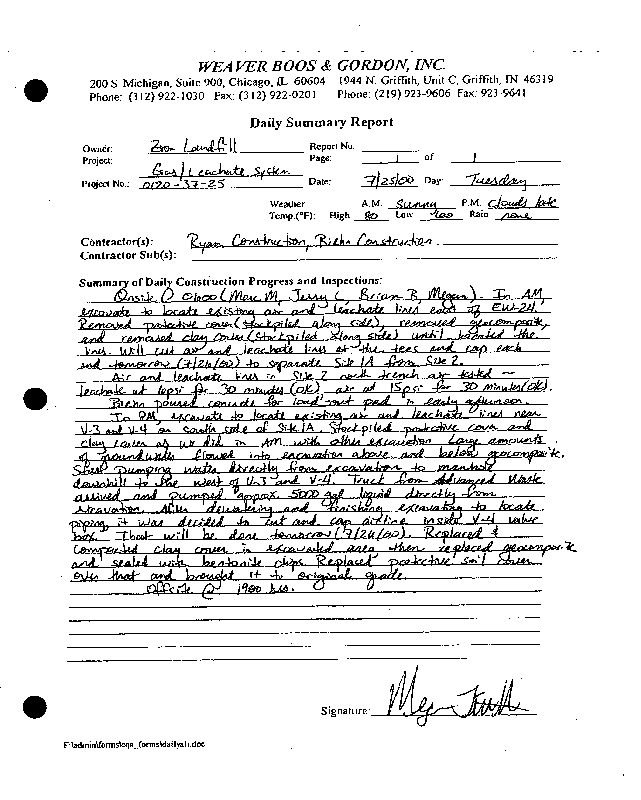 WEAVER BOOS & GORDON, INC.
200 S. Michigan, Suite 900, Chicago, IL 60604 1944 N. Griffith, Unit C, Griffith, IN 46319
Phone: (312) 922-1030 Fax: (312) 922-0201 Phone: (219) 923-9606 Fax: 923-9641
Daily Summary Report
Owner: Zion Landfill Report No.
Project: Gas/Leachate System Page: 1 of 1
Project No.: 0120-37-25 Date: 7/25/00 Day: Tuesday
Weather A.M. Sunny P.M. Clouds late
Temp.(°F): High 80 Low Rain none
Contractor(s): Ryan Construction, Biehn Construction
Contractor Sub(s):
Summary of Daily Construction Progress and Inspections:
Onsite @ (Marc M, Jerry L, Brian B, Megan). In AM,
excavate to locate existing air and leachate lines east of EW-24.
Removed protective cover (stockpiled along side), removed geocomposite,
and removed clay cover (stockpiled along side) until located the
lines. Will cut air and leachate lines at the tees and cap each
end tomorrow (7/26/00) to separate Site 1A from Site 2.
Air and leachate lines in Site 2 north trench are tested ~
leachate at psi for 30 minutes (OK), air at 15psi for 30 minutes (OK).
Biehn poured concrete for load out pad in early afternoon.
In PM, excavate to locate existing air and leachate lines near
V-3 and V-4 on south side of Site 1A. Stockpiled protective cover and
clay cover as we did in AM with other excavation. Large amounts
of groundwater flowed into excavation above and below geocomposite.
Start pumping water directly from excavation to manhole
downhill to the west of V-3 and V-4. Truck from Advanced Waste
arrived and pumped approx. 5000 gal liquid directly from
excavation. After dewatering and finishing excavating to locate
piping, it was decided to cut and cap airline inside V-4 valve
box. That will be done tomorrow (7/26/00). Replaced &
compacted clay cover in excavated area then replaced geocomposite
and sealed with bentonite chips. Replaced protective soil cover
over that and brought it to original grade.
Offsite @ 1900 hrs.
Signature:
F:\admin\forms\cqa_forms\dailyall.doc